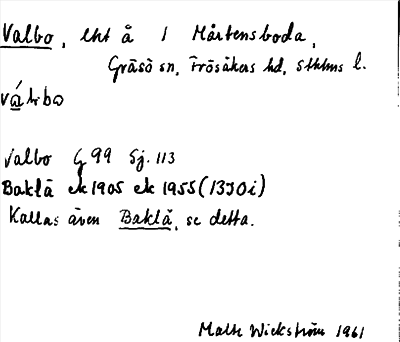 Valbo, lht å 1 Mårtensboda,
Gräsö sn, Frösåkers hd, Sthlms l.
Valbo G 99 Sj. 113
Baklå ek 1905 ek 1955 (13J0i)
Kallas även Baklå, se detta.
Malte Wickström 1961